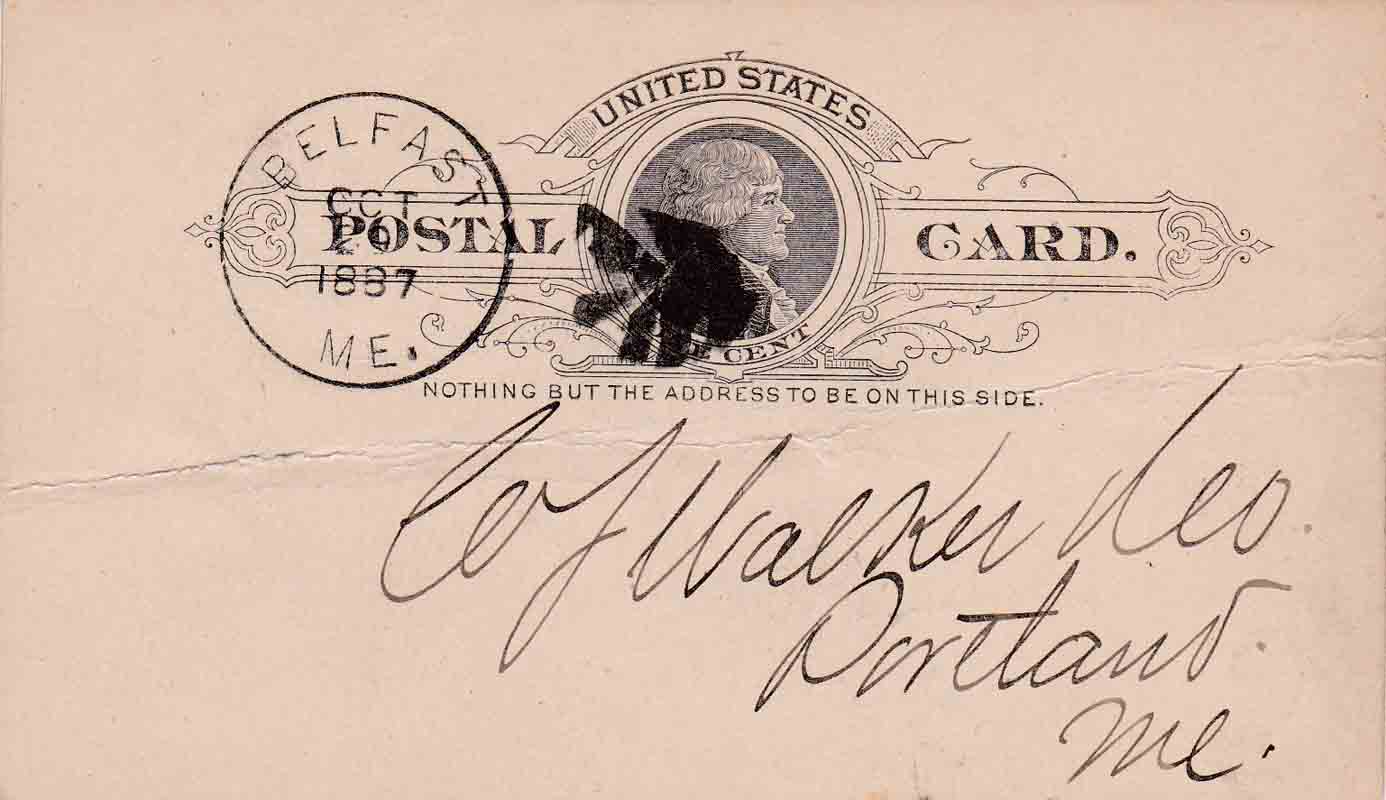 UNITED STATES
BELFAST
OCT
1887
ME.
POSTAL CARD.
CENT
NOTHING BUT THE ADDRESS TO BE ON THIS SIDE.
Walker &Co.
Portland.
Me.